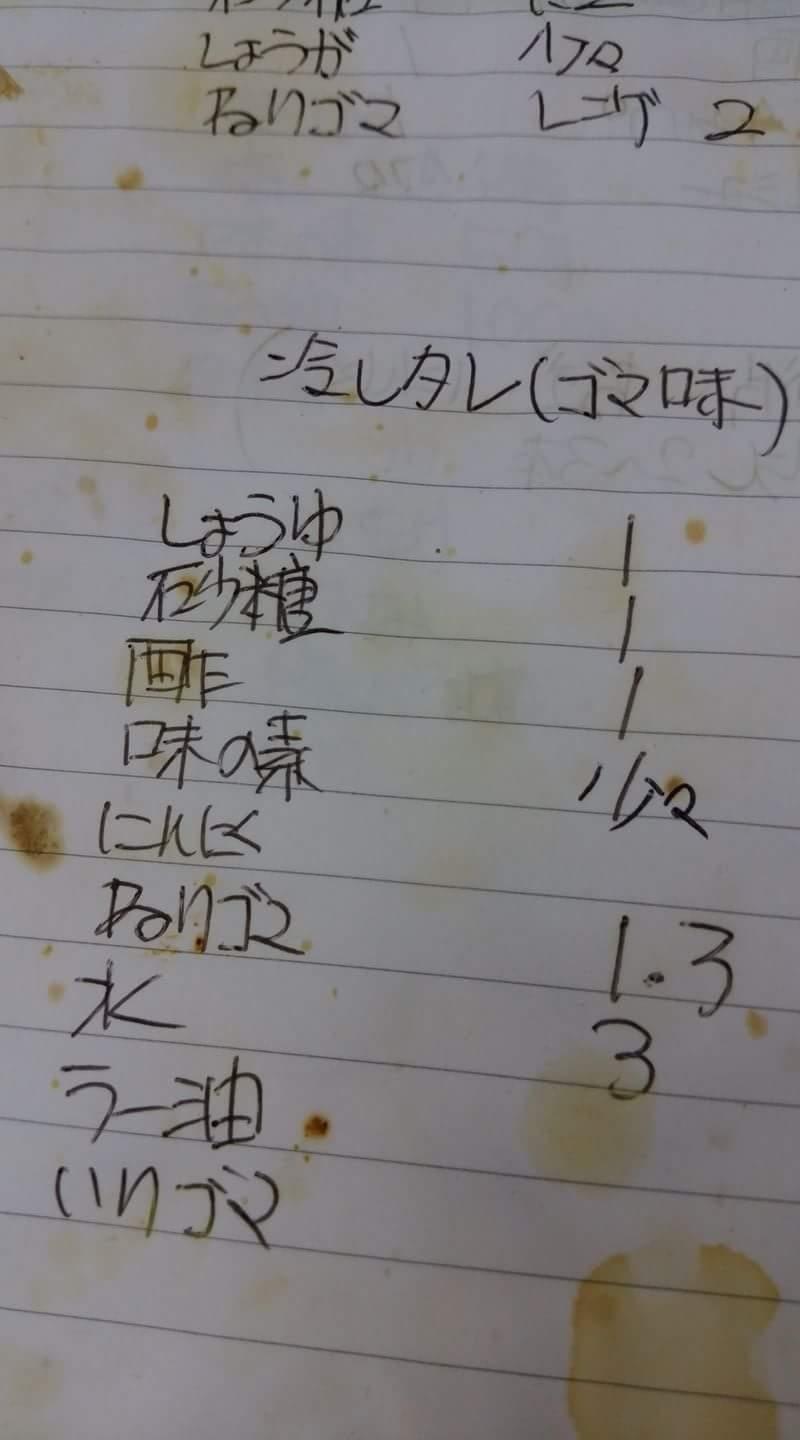 しょうが 少々
ねりゴマ レンゲ 2
冷しタレ(ゴマ味)
しょうゆ 1
砂糖 1
酢 1
味の素 少々
にんにく
ねりゴマ 1.3
水 3
ラー油
いりゴマ